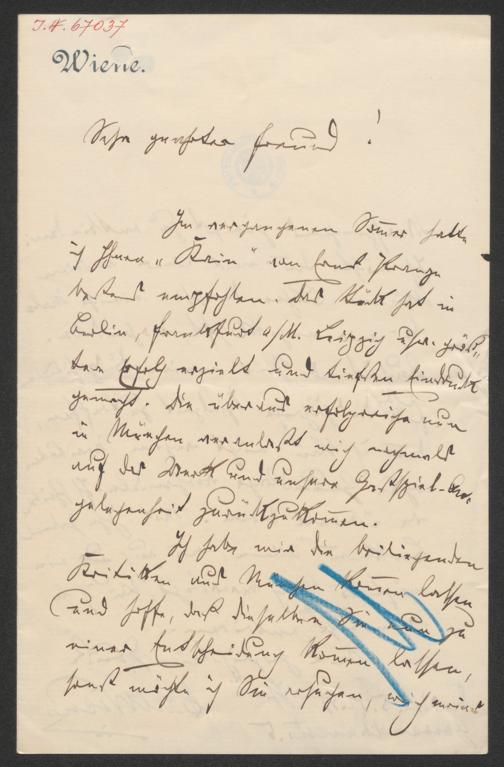 I.N. 67037
Wiene.
Sehr geehrter Freund!
Im vergangenen Sommer hatte
ich Ihnen „Kain" von Ernst
bestens empfohlen. Das Stück hat in
Berlin, Frankfurt a/M. Leipzig usw. größ-
ten Erfolg erzielt und tiefsten Eindruck
gemacht. Die überaus erfolgreiche nun
in München veranlaßt mich nochmals
auf das Werk und unsere Gastspiel-An-
gelegenheit zurückzukommen.
Ich habe mir die beiliegenden
Kritiken aus München kommen lassen
und hoffe, daß dieselben Sie nun zu
einer Entscheidung kommen lassen,
sonst möchte ich Sie ersuchen, mich